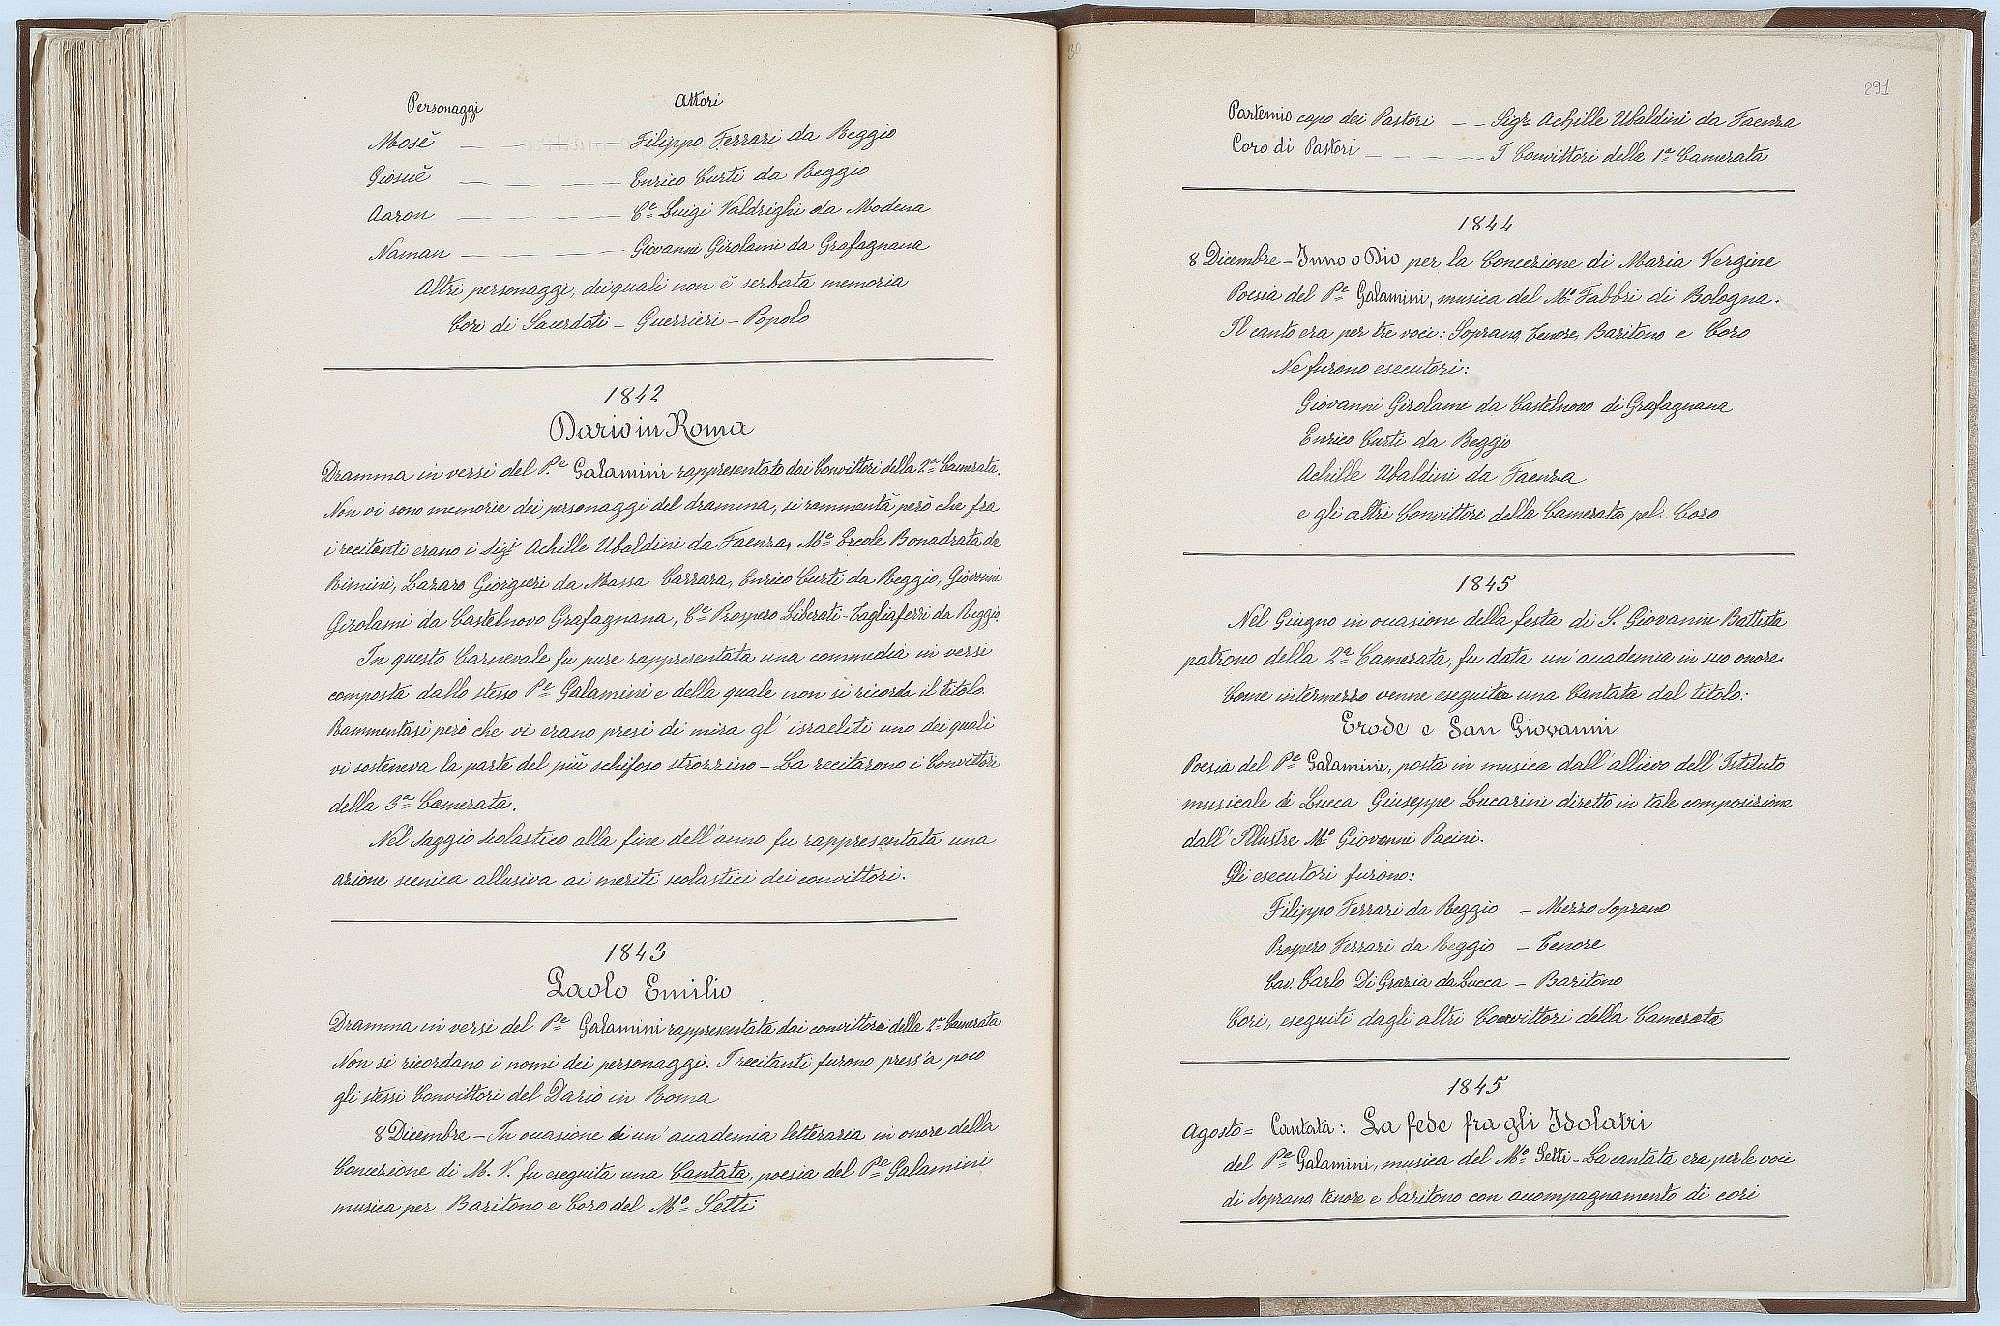 Personaggi Attori
Mosè — — — — Filippo Ferrari da Reggio
Giosuè — — — — Enrico Curti da Reggio
Aaron — — — — C.e Luigi Valdrighi da Modena
Naman — — — — Giovanni Girolami da Grafagnana
Altri personaggi, dei quali non è serbata memoria
Cori di Sacerdoti – Guerrieri – Popolo
1842
Dario in Roma
Dramma in versi del P.e Galamini rappresentato dai Convittori della 2.a Camerata.
Non vi sono memorie dei personaggi del dramma, si rammenta però che fra
i recitanti erano i Sigri Achille Ubaldini da Faenza, M.e Ercole Bonadrata da
Rimini, Lazaro Giorgieri da Massa Carrara, Enrico Curti da Reggio, Giovanni
Girolami da Castelnovo Grafagnana, C.e Prospero Liberati-Tagliaferri da Reggio.
In questo Carnevale fu pure rappresentata una commedia in versi
composta dallo stesso P.e Galamini e della quale non si ricorda il titolo.
Rammentasi però che vi erano presi di mira gl' israeliti uno dei quali
vi sosteneva la parte del più schifoso strozzino – La recitarono i Convittori
della 3.a Camerata.
Nel Saggio scolastico alla fine dell'anno fu rappresentata una
azione scenica allusiva ai meriti scolastici dei convittori.
1843
Paolo Emilio
Dramma in versi del P.e Galamini rappresentata dai convittori della 2.a Camerata
Non si ricordano i nomi dei personaggi. I recitanti furono press'a poco
gli stessi Convittori del Dario in Roma
8 Dicembre – In occasione di un' accademia letteraria in onore della
Concezione di M. V. fu eseguita una Cantata, poesia del P.e Galamini
musica per Baritono e Coro del M.o Setti
30
291
Partenio capo dei Pastori — — Sigr. Achille Ubaldini da Faenza
Coro di Pastori — — — — I Convittori della 1.a Camerata
1844
8 Dicembre – Inno a Dio per la Concezione di Maria Vergine
Poesia del P.e Galamini, musica del M.o Fabbri di Bologna.
Il canto era per tre voci: Soprano, Tenore, Baritono e Coro
Ne furono esecutori:
Giovanni Girolami da Castelnovo di Grafagnana
Enrico Curti da Reggio
Achille Ubaldini da Faenza
e gli altri Convittori della Camerata pel Coro
1845
Nel Giugno in occasione della festa di S. Giovanni Battista
patrono della 2.a Camerata, fu data un' accademia in suo onore.
Come intermezzo venne eseguita una Cantata dal titolo:
Erode e San Giovanni
Poesia del P.e Galamini, posta in musica dall' allievo dell' Istituto
musicale di Lucca Giuseppe Lucarini diretto in tale composizione
dall' Illustre M.o Giovanni Pacini.
Gli esecutori furono:
Filippo Ferrari da Reggio – Mezzo Soprano
Prospero Ferrari da Reggio – Tenore
Cav. Carlo Di Grazia da Lucca – Baritono
Cori, eseguiti dagli altri Convittori della Camerata
1845
Agosto = Cantata: La fede fra gli Idolatri
del P.e Galamini, musica del M.o Setti – La cantata era per le voci
di Soprano, tenore e baritono con accompagnamento di cori